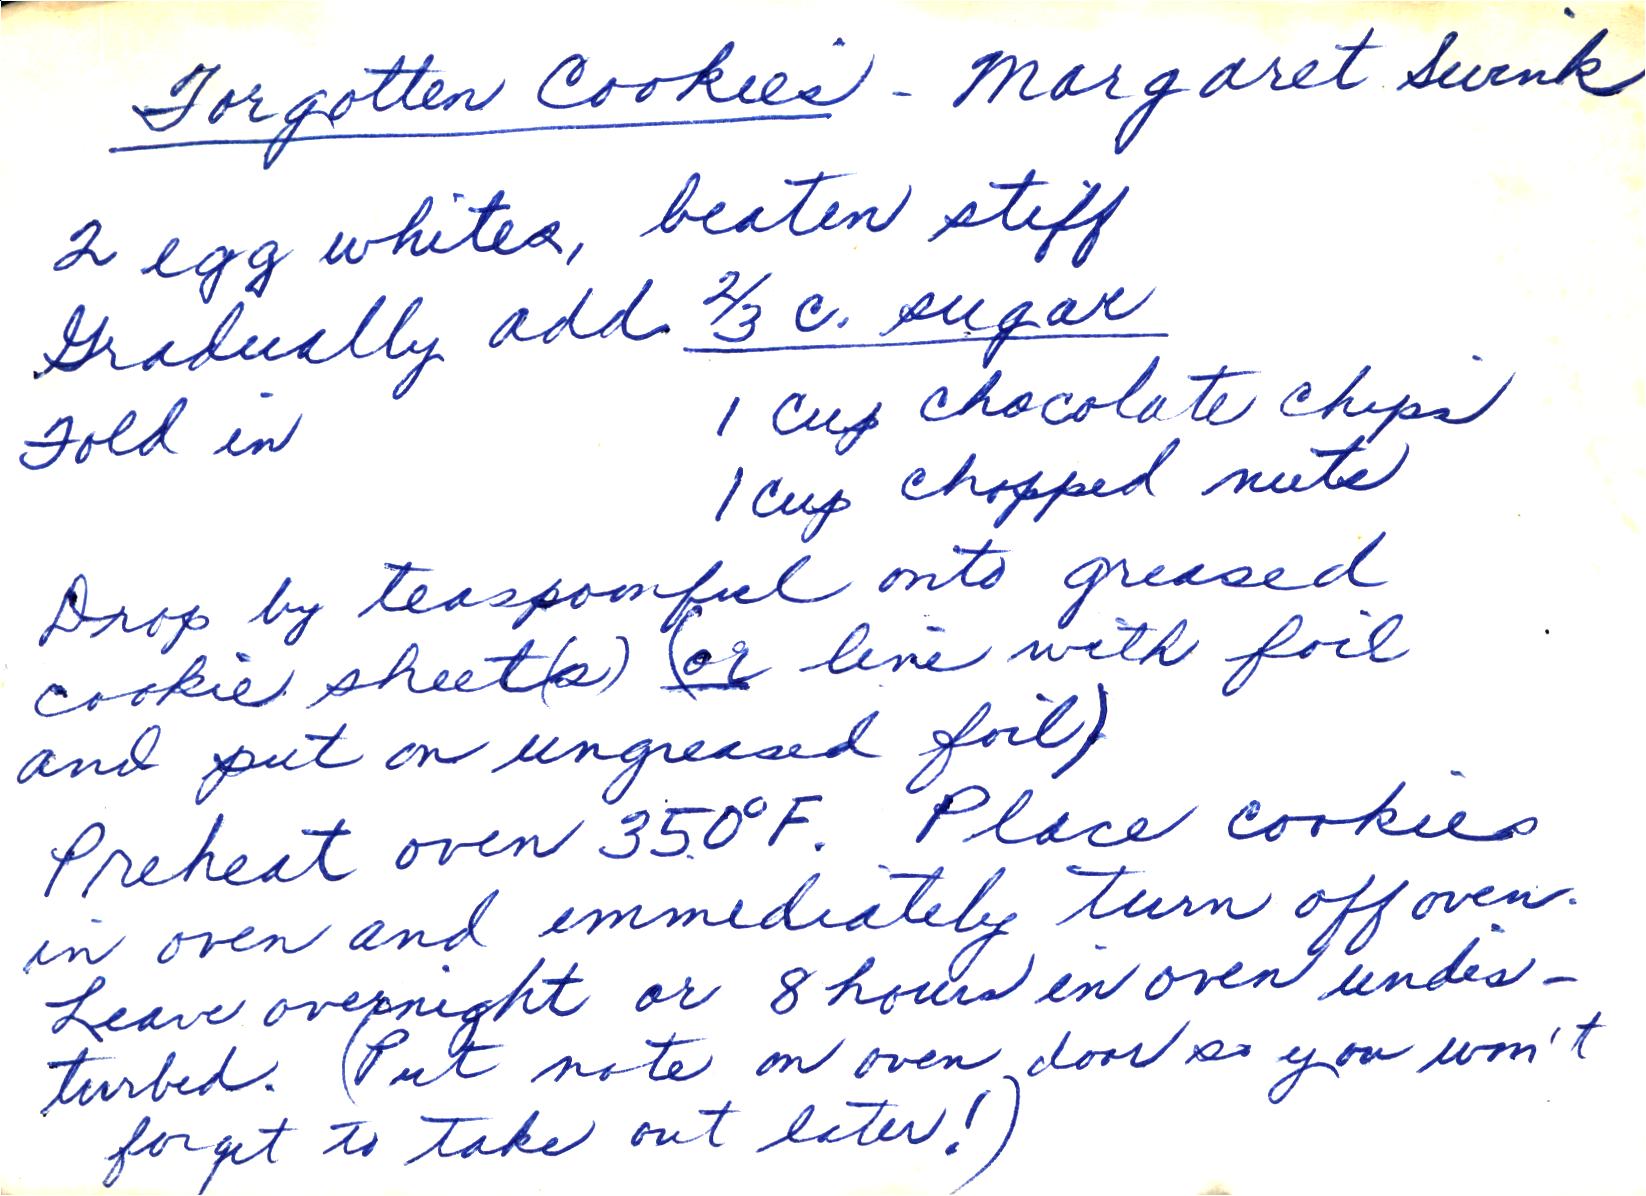 Forgotten Cookies - Margaret Swink
2 egg whites, beaten stiff
Gradually add 2/3 c. sugar
Fold in 1 cup chocolate chips
1 cup chopped nuts
Drop by teaspoonful onto greased
cookie sheet(s) (or line with foil
and put on ungreased foil)
Preheat oven 350°F. Place cookies
in oven and immediately turn off oven.
Leave overnight or 8 hours in oven undis-
turbed. (Put note on oven door so you won't
forget to take out later!)